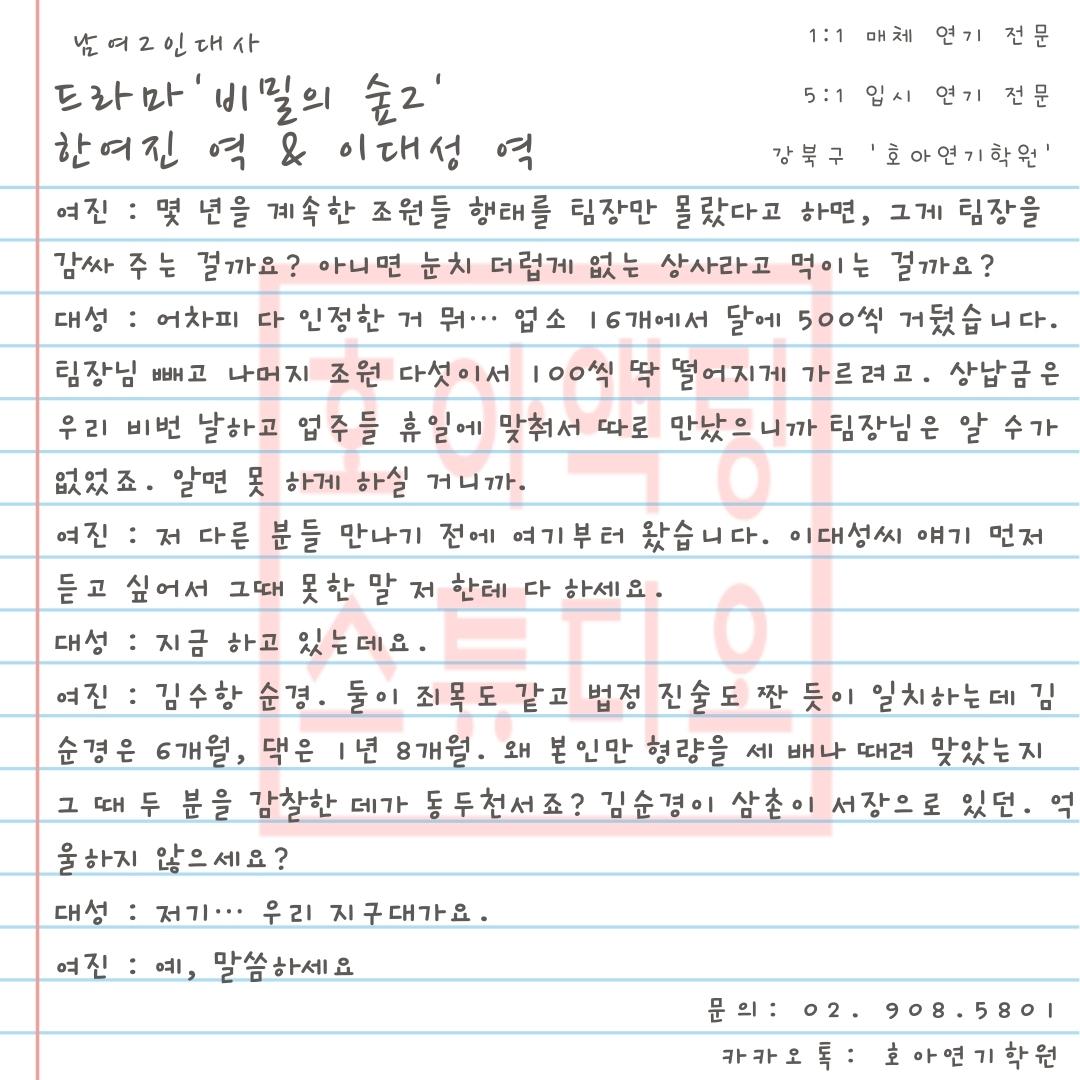 남여2인대사
드라마 '비밀의 숲2'
한여진 역 & 이대성 역
1:1 매체 연기 전문
5:1 입시 연기 전문
강북구 '호아연기학원'
여진 : 몇 년을 계속한 조원들 행태를 팀장만 몰랐다고 하면, 그게 팀장을
감싸 주는 걸까요? 아니면 눈치 더럽게 없는 상사라고 먹이는 걸까요?
대성 : 어차피 다 인정한 거 뭐… 업소 16개에서 달에 500씩 거뒀습니다.
팀장님 빼고 나머지 조원 다섯이서 100씩 딱 떨어지게 가르려고. 상납금은
우리 비번 날하고 업주들 휴일에 맞춰서 따로 만났으니까 팀장님은 알 수가
없었죠. 알면 못 하게 하실 거니까.
여진 : 저 다른 분들 만나기 전에 여기부터 왔습니다. 이대성씨 얘기 먼저
듣고 싶어서 그때 못한 말 저 한테 다 하세요.
대성 : 지금 하고 있는데요.
여진 : 김수항 순경. 둘이 죄목도 같고 법정 진술도 짠 듯이 일치하는데 김
순경은 6개월, 댁은 1년 8개월. 왜 본인만 형량을 세 배나 때려 맞았는지
그 때 두 분을 감찰한 데가 동두천서죠? 김순경이 삼촌이 서장으로 있던. 억
울하지 않으세요?
대성 : 저기… 우리 지구대가요.
여진 : 예, 말씀하세요
문의: 02. 908.5801
카카오톡: 호아연기학원
호아액팅
스튜디오